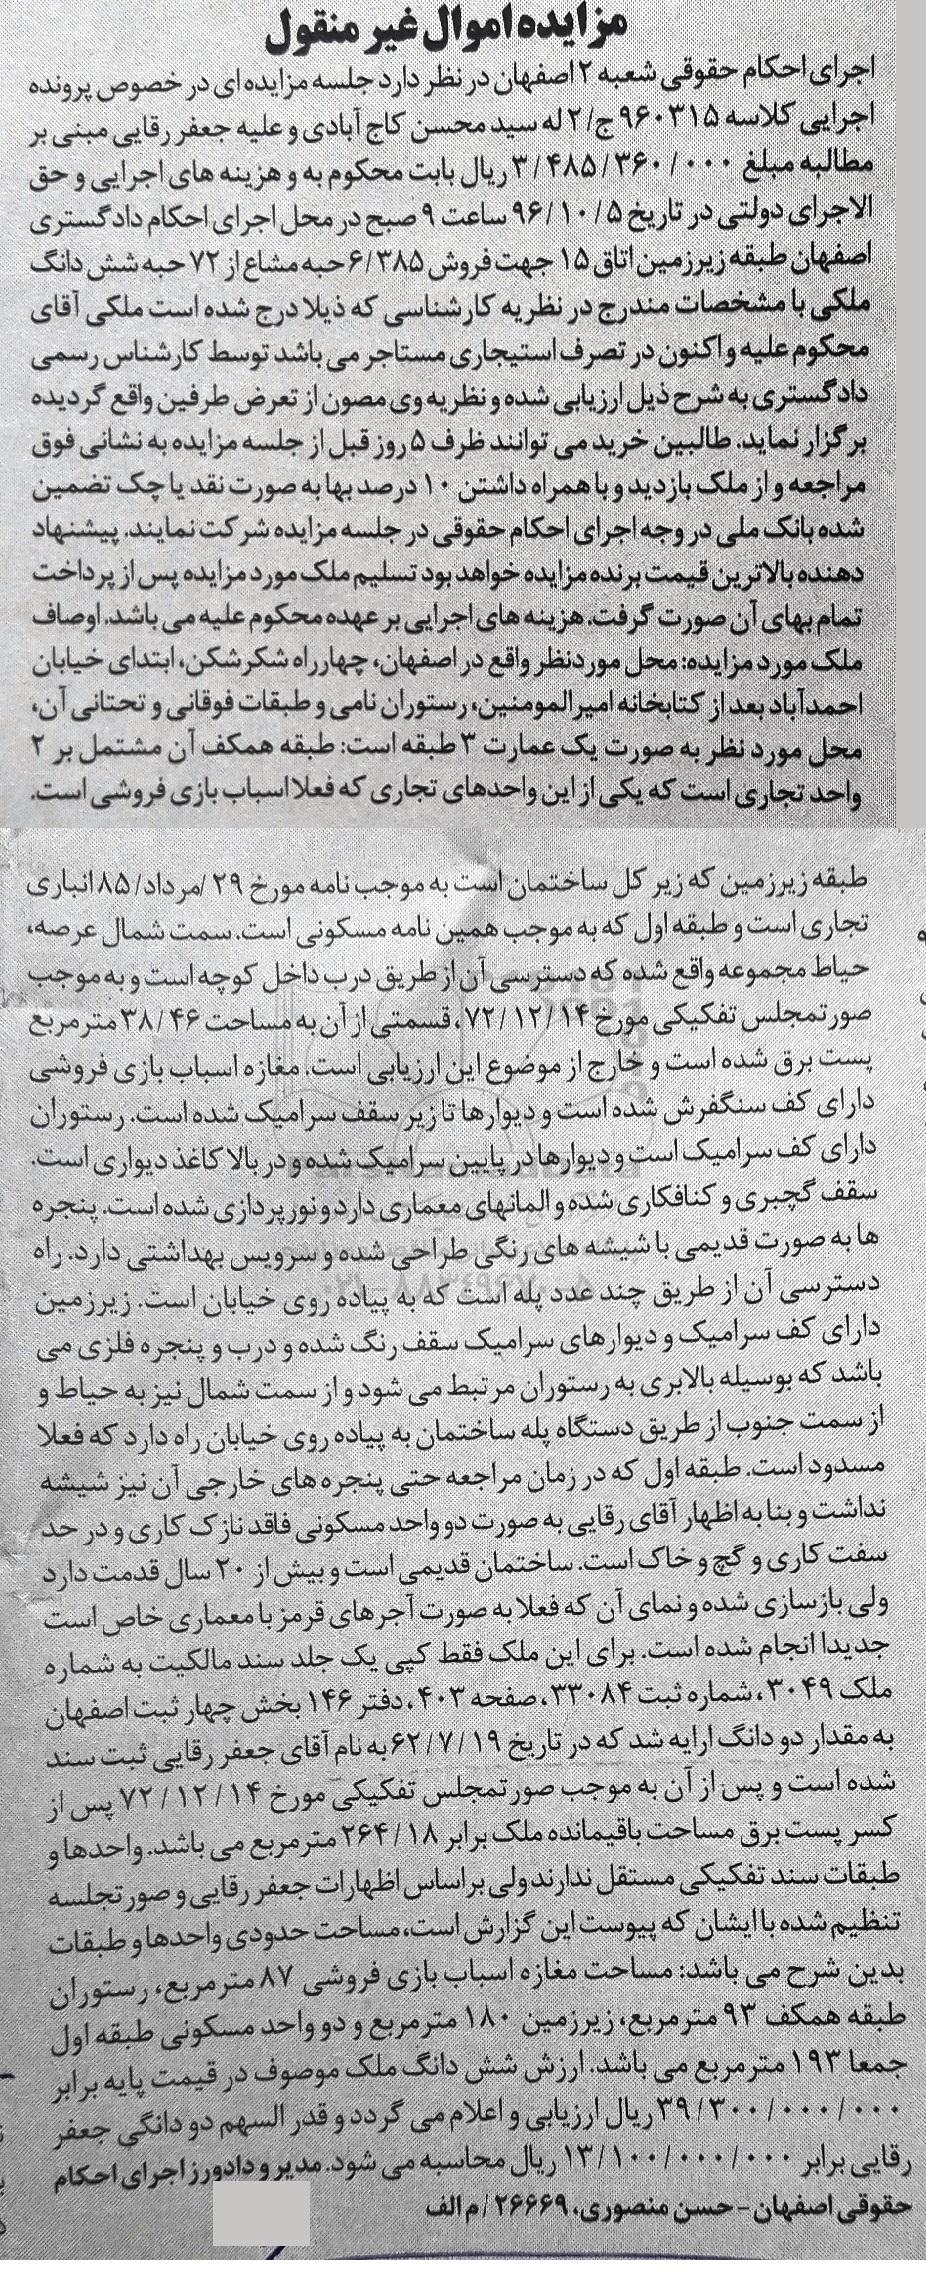 مزایده اموال غیر منقول
اجرای احکام حقوقی شعبه ۲ اصفهان در نظر دارد جلسه مزایده ای در خصوص پرونده
اجرایی کلاسه ۹۶۰۳۱۵ ج/۲ له سید محسن کاج آبادی و علیه جعفر رقایی مبنی بر
مطالبه مبلغ ۳/۴۸۵/۳۶۰/۰۰۰ ریال بابت محکوم به و هزینه های اجرایی و حق
الاجرای دولتی در تاریخ ۹۶/۱۰/۵ ساعت ۹ صبح در محل اجرای احکام دادگستری
اصفهان طبقه زیرزمین اتاق ۱۵ جهت فروش ۶/۳۸۵ حبه مشاع از ۷۲ حبه شش دانگ
ملکی با مشخصات مندرج در نظریه کارشناسی که ذیلا درج شده است ملکی آقای
محکوم علیه و اکنون در تصرف استیجاری مستاجر می باشد توسط کارشناس رسمی
دادگستری به شرح ذیل ارزیابی شده و نظریه وی مصون از تعرض طرفین واقع گردیده
برگزار نماید. طالبین خرید می توانند ظرف ۵ روز قبل از جلسه مزایده به نشانی فوق
مراجعه و از ملک بازدید و با همراه داشتن ۱۰ درصد بها به صورت نقد یا چک تضمین
شده بانک ملی در وجه اجرای احکام حقوقی در جلسه مزایده شرکت نمایند. پیشنهاد
دهنده بالاترین قیمت برنده مزایده خواهد بود تسلیم ملک مورد مزایده پس از پرداخت
تمام بهای آن صورت گرفت. هزینه های اجرایی بر عهده محکوم علیه می باشد. اوصاف
ملک مورد مزایده: محل موردنظر واقع در اصفهان، چهارراه شکرشکن، ابتدای خیابان
احمدآباد بعد از کتابخانه امیرالمومنین، رستوران نامی و طبقات فوقانی و تحتانی آن،
محل مورد نظر به صورت یک عمارت ۳ طبقه است: طبقه همکف آن مشتمل بر ۲
واحد تجاری است که یکی از این واحدهای تجاری که فعلا اسباب بازی فروشی است.
طبقه زیرزمین که زیر کل ساختمان است به موجب نامه مورخ ۲۹/مرداد/۸۵ انباری
تجاری است و طبقه اول که به موجب همین نامه مسکونی است. سمت شمال عرصه،
حیاط مجموعه واقع شده که دسترسی آن از طریق درب داخل کوچه است و به موجب
صورتمجلس تفکیکی مورخ ۷۲/۱۲/۱۴، قسمتی از آن به مساحت ۳۸/۴۶ مترمربع
پست برق شده است و خارج از موضوع این ارزیابی است. مغازه اسباب بازی فروشی
دارای کف سنگفرش شده است و دیوارها تا زیر سقف سرامیک شده است. رستوران
دارای کف سرامیک است و دیوارها در پایین سرامیک شده و در بالا کاغذ دیواری است.
سقف گچبری و کنافکاری شده و المانهای معماری دارد و نورپردازی شده است. پنجره
ها به صورت قدیمی با شیشه های رنگی طراحی شده و سرویس بهداشتی دارد. راه
دسترسی آن از طریق چند عدد پله است که به پیاده روی خیابان است. زیرزمین
دارای کف سرامیک و دیوارهای سرامیک سقف رنگ شده و درب و پنجره فلزی می
باشد که بوسیله بالابری به رستوران مرتبط می شود و از سمت شمال نیز به حیاط و
از سمت جنوب از طریق دستگاه پله ساختمان به پیاده روی خیابان راه دارد که فعلا
مسدود است. طبقه اول که در زمان مراجعه حتی پنجره های خارجی آن نیز شیشه
نداشت و بنا به اظهار آقای رقایی به صورت دو واحد مسکونی فاقد نازک کاری و در حد
سفت کاری و گچ و خاک است. ساختمان قدیمی است و بیش از ۲۰ سال قدمت دارد
ولی بازسازی شده و نمای آن که فعلا به صورت آجرهای قرمز با معماری خاص است
جدیدا انجام شده است. برای این ملک فقط کپی یک جلد سند مالکیت به شماره
ملک ۳۰۴۹، شماره ثبت ۳۳۰۸۴، صفحه ۴۰۳، دفتر ۱۴۶ بخش چهار ثبت اصفهان
به مقدار دو دانگ ارایه شد که در تاریخ ۶۲/۷/۱۹ به نام آقای جعفر رقایی ثبت سند
شده است و پس از آن به موجب صورتمجلس تفکیکی مورخ ۷۲/۱۲/۱۴ پس از
کسر پست برق مساحت باقیمانده ملک برابر ۲۶۴/۱۸ مترمربع می باشد. واحدها و
طبقات سند تفکیکی مستقل ندارند ولی براساس اظهارات جعفر رقایی و صورتجلسه
تنظیم شده با ایشان که پیوست این گزارش است، مساحت حدودی واحدها و طبقات
بدین شرح می باشد: مساحت مغازه اسباب بازی فروشی ۸۷ مترمربع، رستوران
طبقه همکف ۹۳ مترمربع، زیرزمین ۱۸۰ مترمربع و دو واحد مسکونی طبقه اول
جمعا ۱۹۳ مترمربع می باشد. ارزش شش دانگ ملک موصوف در قیمت پایه برابر
۳۹/۳۰۰/۰۰۰/۰۰۰ ریال ارزیابی و اعلام می گردد و قدر السهم دو دانگی جعفر
رقایی برابر ۱۳/۱۰۰/۰۰۰/۰۰۰ ریال محاسبه می شود. مدیر و دادورز اجرای احکام
حقوقی اصفهان - حسن منصوری، ۲۶۶۶۹/م الف